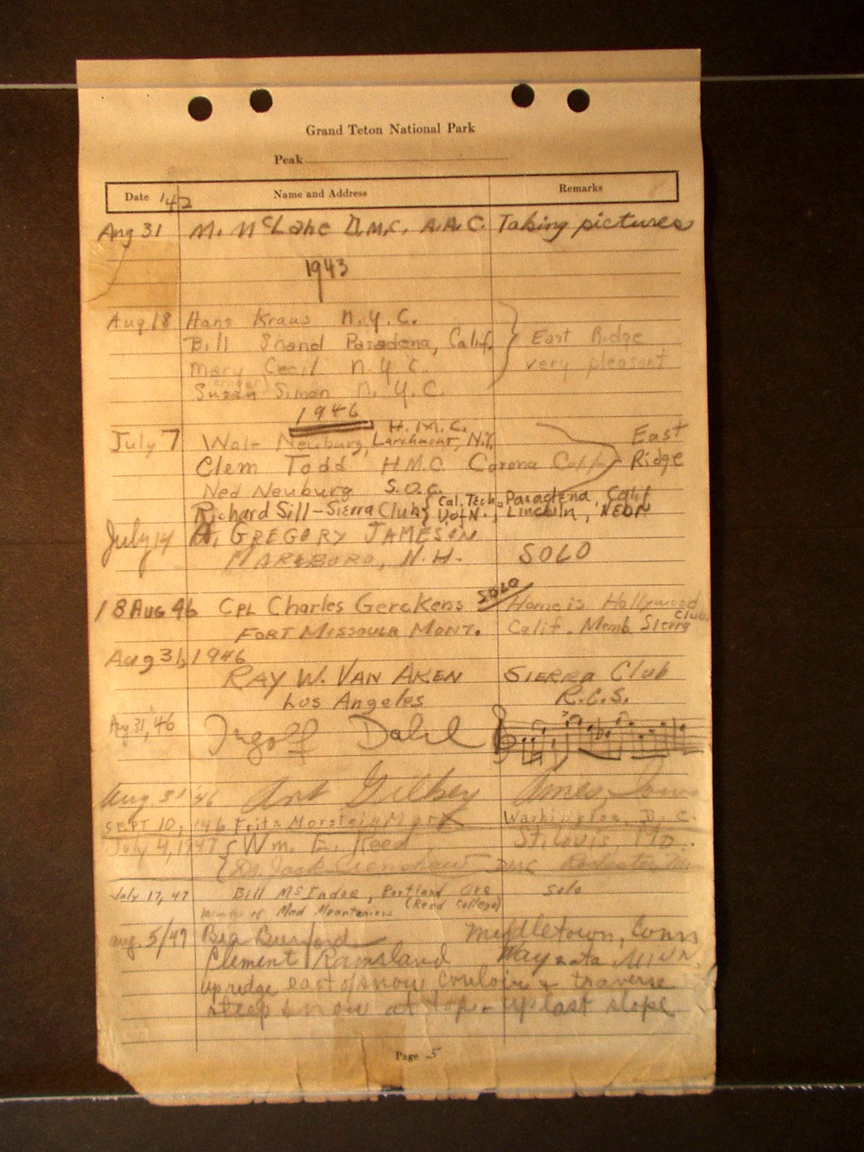 Grand Teton National Park
Peak
Date '42 Name and Address Remarks
Aug 31 M. McLane D.M.C. A.A.C. Taking pictures
1943
Aug 18 Hans Kraus N.Y.C.
Bill Shand Pasadena, Calif. East Ridge
Mary Cecil N.Y.C. very pleasant
Susan Simon N.Y.C.
1946
H.M.C.
July 7 Walt Neuburg, Larchmont, N.Y. East
Clem Todd HMC Corona Calif Ridge
Ned Neuburg S.O.C.
Richard Sill - Sierra Club { Cal. Tech., Pasadena, Calif
U of N., Lincoln, NEBR
July 14 GREGORY JAMESON
MARLBORO, N.H. SOLO
18 Aug 46 CPL Charles Gerckens SOLO Home is Hollywood
FORT MISSOULA MONT. Calif. Memb. Sierra Club
Aug 31, 1946
RAY W. VAN AKEN SIERRA Club
Los Angeles R.C.S.
Aug 31, '46 Ingolf Dahl
Aug 31 '46 Art Gilkey Ames, Iowa
SEPT 10, 1946 Fritz Morstein Marx Washington, D.C.
July 4, 1947 { Wm. E. Reed St. Louis, Mo.
Dr Jack Crenshaw DMC Rochester, Minn
July 17, 47 Bill McIndoe, Portland Ore solo
member of Mad Mountaineers (Reed College)
Aug. 5/49 Burford Middletown, Conn
Clement Ramsland Wayzata, Minn.
up ridge east of snow couloir & traverse
steep snow at top - up last slope
Page 5